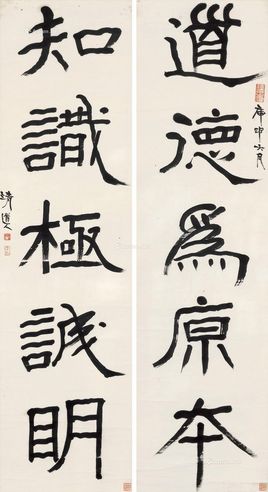 道德為原本
庚申六月
知識極誠明